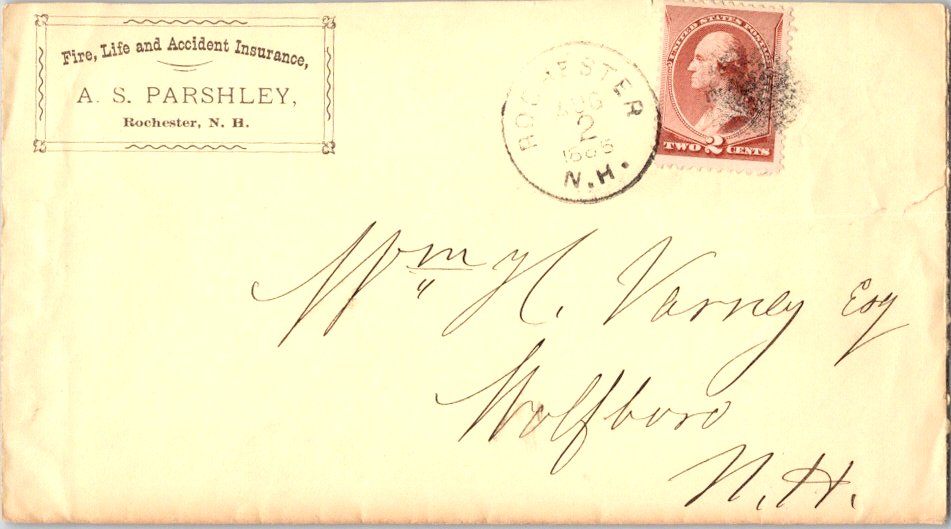 Fire, Life and Accident Insurance,
A. S. PARSHLEY,
Rochester, N. H.
ROCHESTER
AUG
2
N.H.
UNITED STATES POSTAGE
TWO 2 CENTS
Wm H. Varney Esq
Wolfboro
N.H.